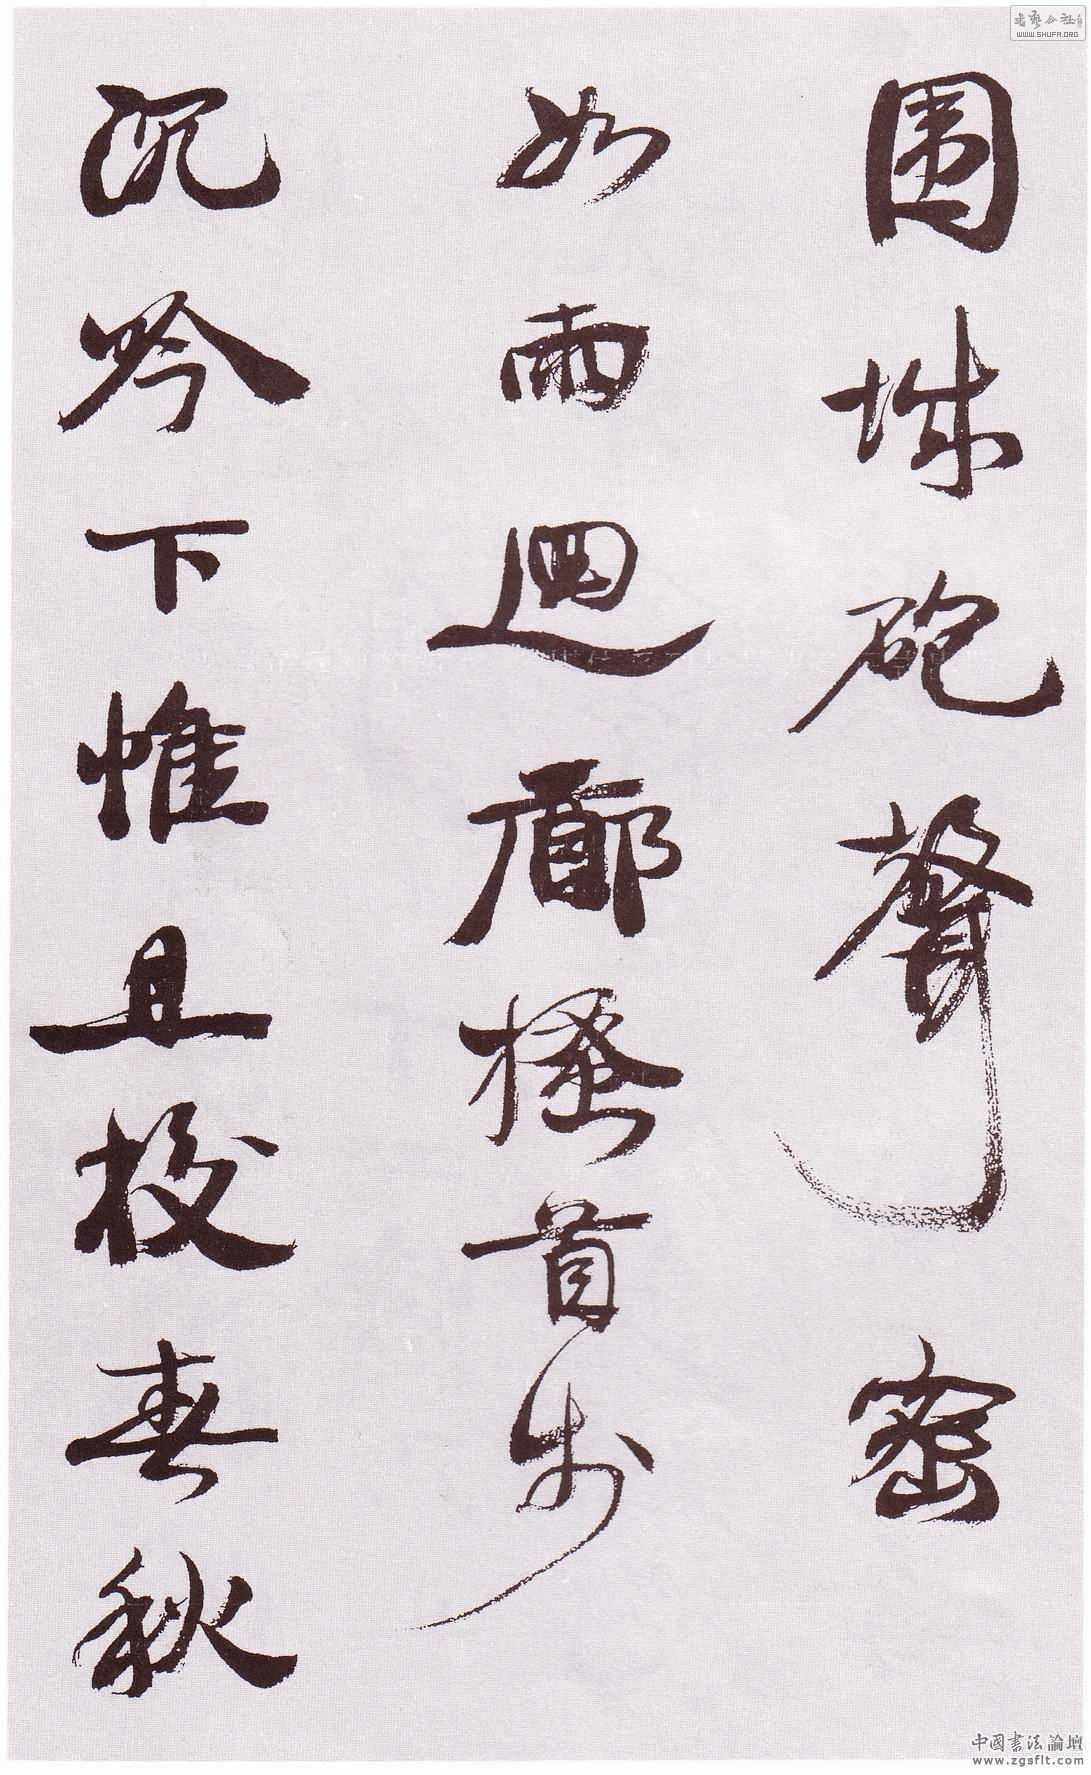 圍城砲聲密
如雨迴廊搔首步
沉吟下帷且校春秋
书艺公社
WWW.SHUFA.ORG
中國書法論壇
www.zgsflt.com